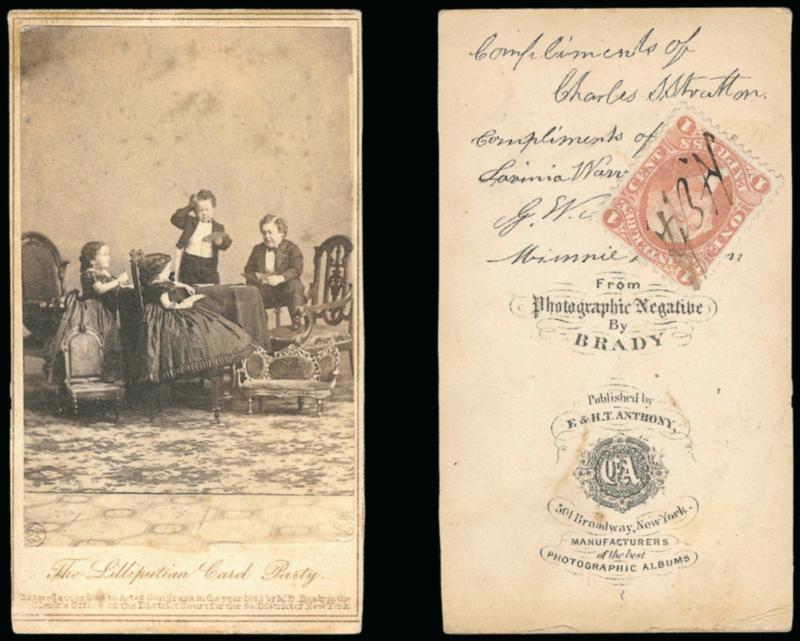 The Lilliputian Card Party.
Entered according to Act of Congress in the year 1863 by M.B. Brady in the
Clerk's Office of the District Court for the So. District of New York
Compliments of
Charles S Stratton.
Compliments of
Lavinia Warr
G. W.
Minnie n
1 CENT EXPRESS 1
1 ONE
From
Photographic Negative
By
BRADY
Published by
E & H.T. ANTHONY,
501 Broadway, New York.
MANUFACTURERS
of the best
PHOTOGRAPHIC ALBUMS